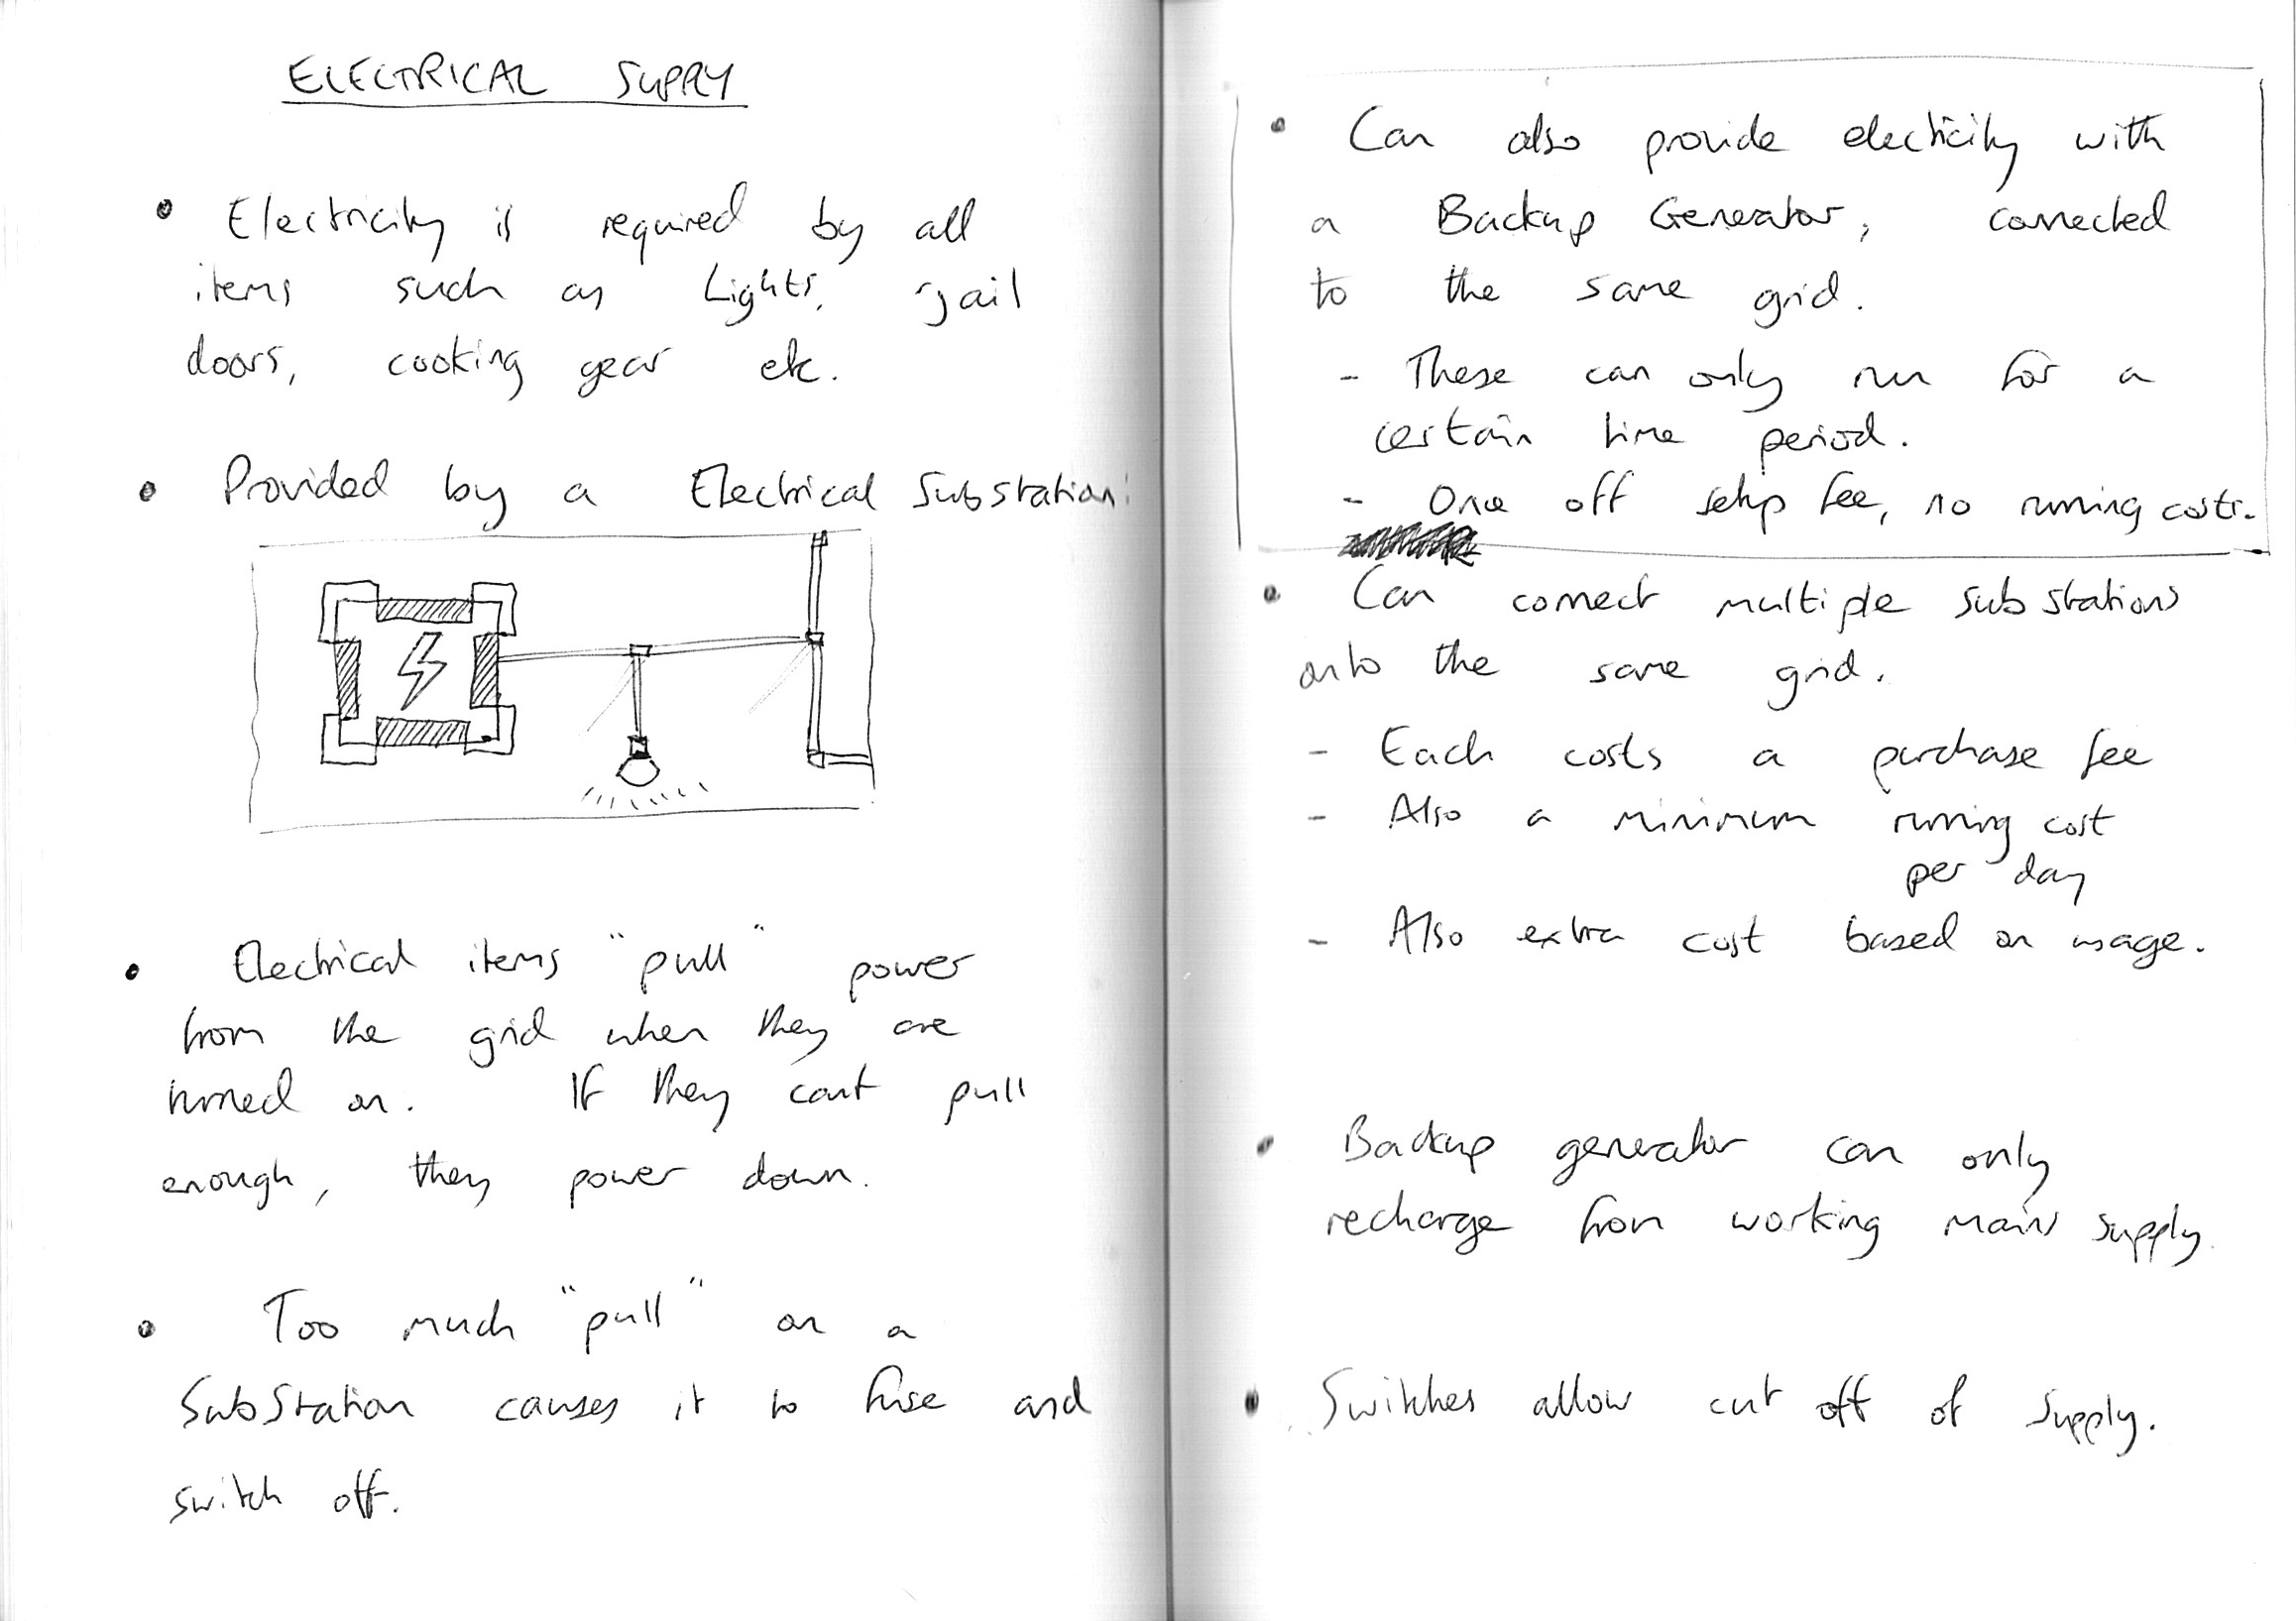 ELECTRICAL SUPPLY
• Electricity is required by all
items such as Lights, jail
doors, cooking gear etc.
• Provided by a Electrical Substation:
• Electrical items "pull" power
from the grid when they are
turned on. If they cant pull
enough, they power down.
• Too much "pull" on a
SubStation causes it to fuse and
switch off.
• Can also provide electicity with
a Backup Generator, connected
to the same grid.
- These can only run for a
certain time period.
- One off setup fee, no running costs.
• Can connect multiple substations
onto the same grid.
- Each costs a purchase fee
- Also a minimum running cost
per day
- Also extra cost based on usage.
• Backup generator can only
recharge from working mains supply.
• Switches allow cut off of supply.